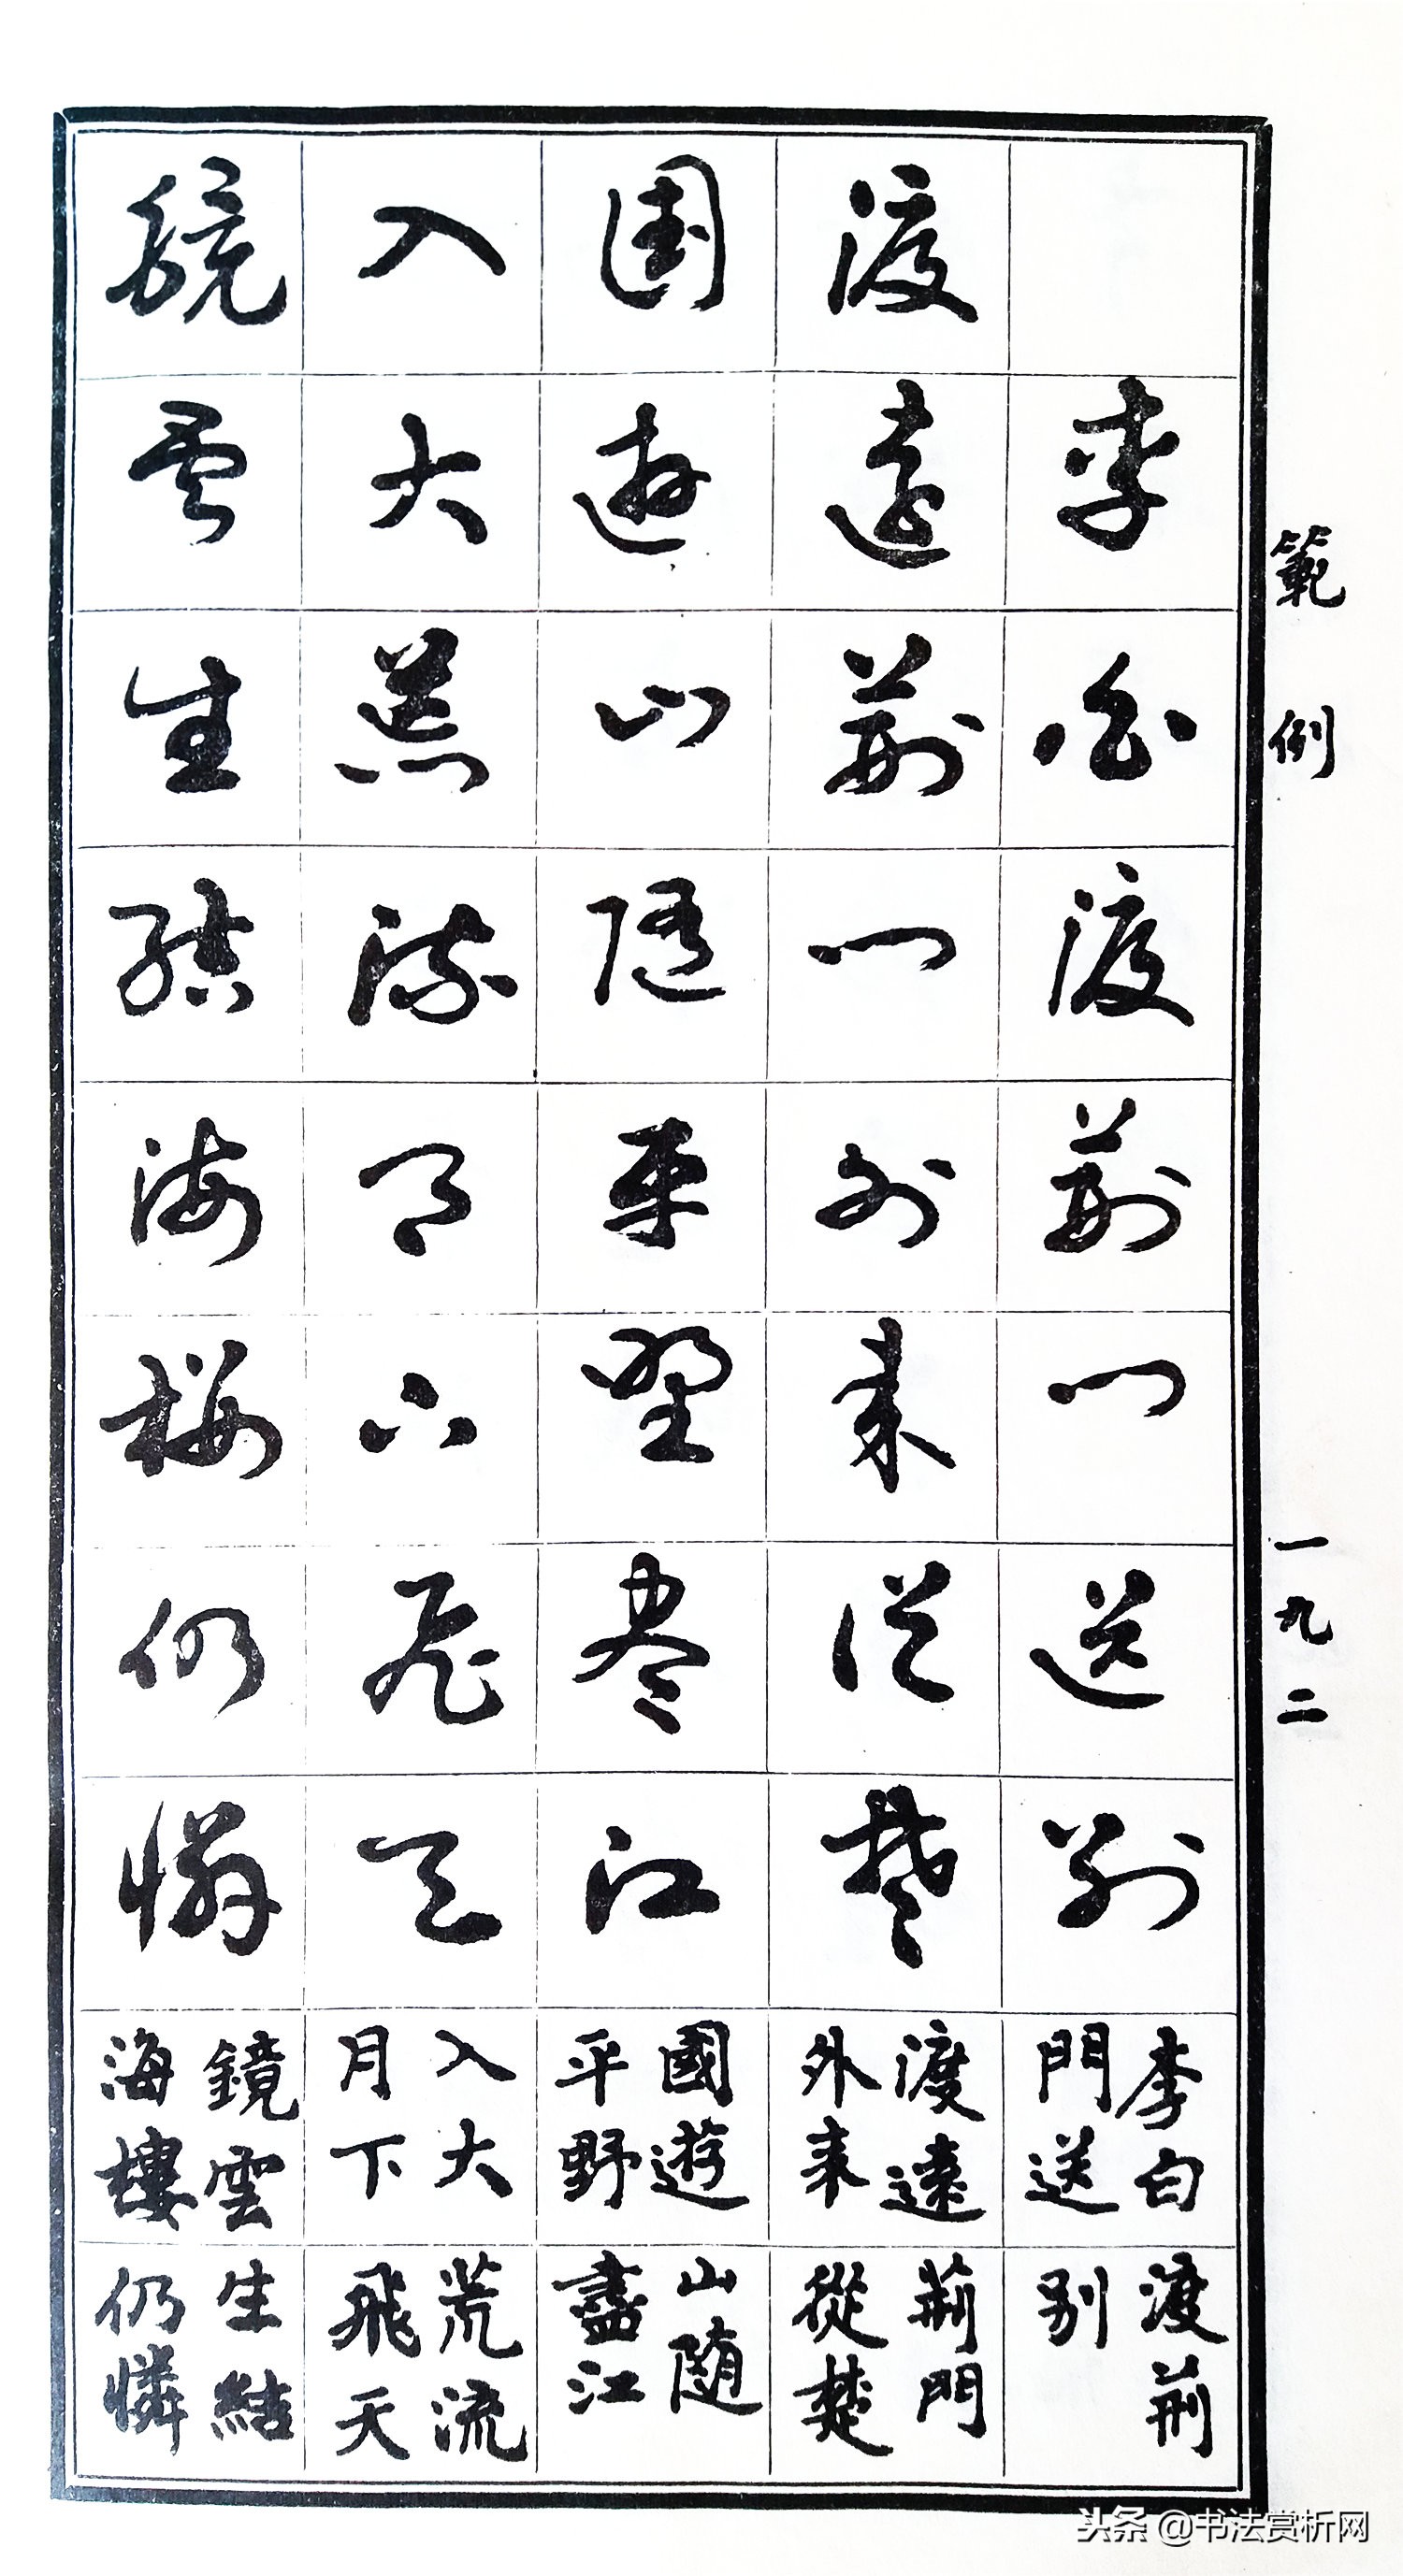 範例
一九二
李白渡荆門送别
李白渡荆
門送别
渡遠荆門外来從楚
渡遠荆門
外来從楚
國遊山隨平野盡江
國遊山随
平野盡江
入大荒流月下飛天
入大荒流
月下飛天
鏡雲生結海樓仍憐
鏡雲生結
海樓仍憐
头条 @书法赏析网